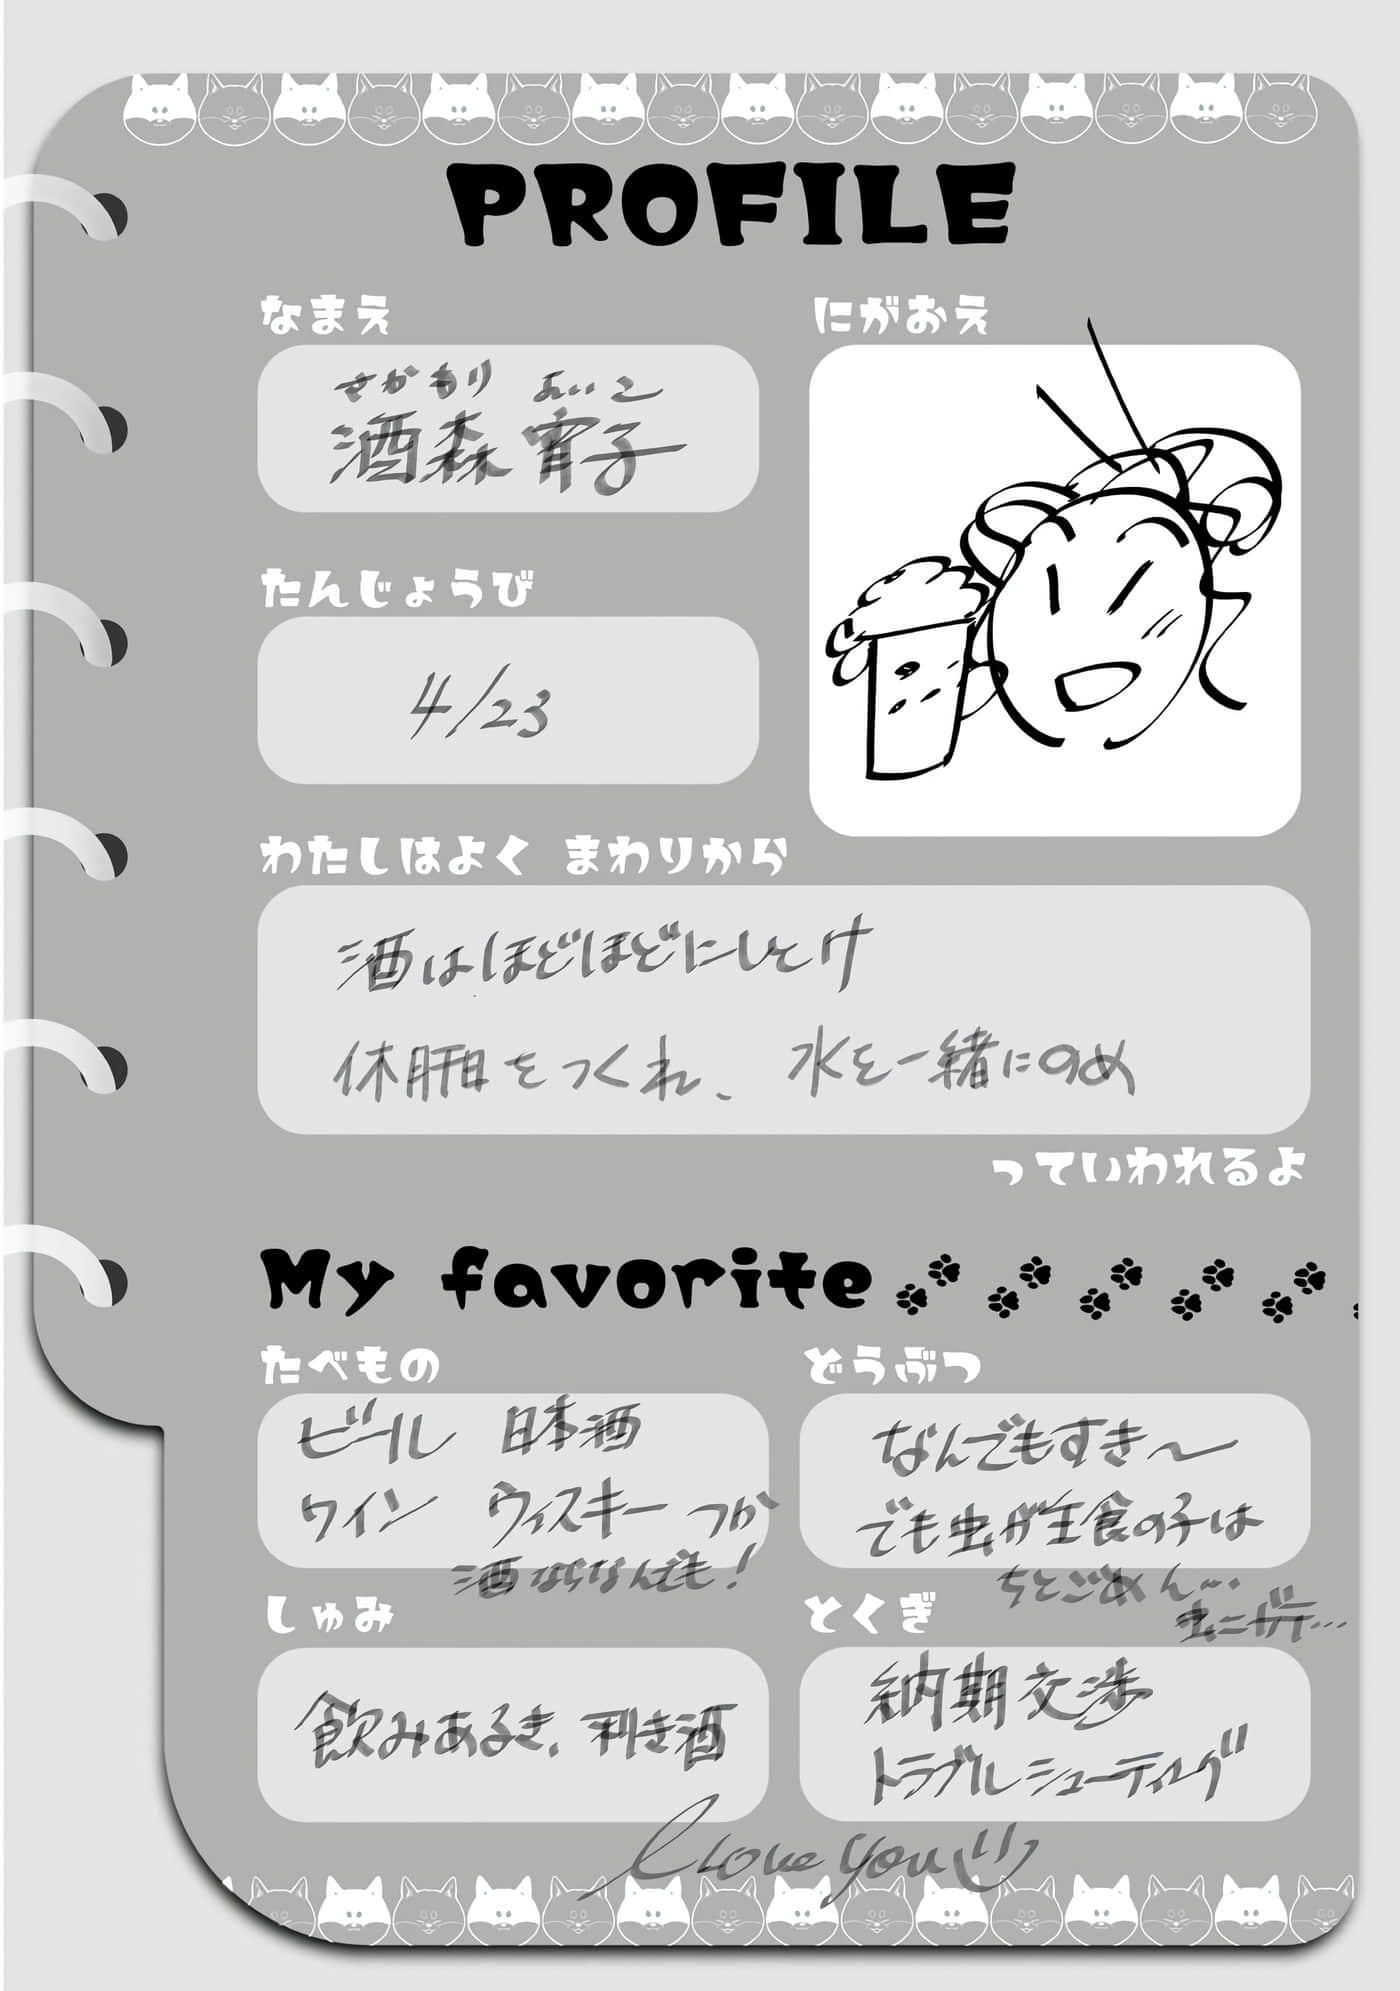 PROFILE
なまえ
さかもり よいこ
酒森 宵子
にがおえ
たんじょうび
4/23
わたしはよく まわりから
酒はほどほどにしとけ
休肝日をつくれ、水を一緒にのめ
っていわれるよ
My favorite
たべもの
ビール 日本酒
ワイン ウィスキー つか
酒ならなんでも!
どうぶつ
なんでもすき〜
でも虫が主食の子は
ちとごめん…
虫ニガテ…
しゅみ
飲みあるき、利き酒
とくぎ
納期交渉
トラブルシューティング
I Love you